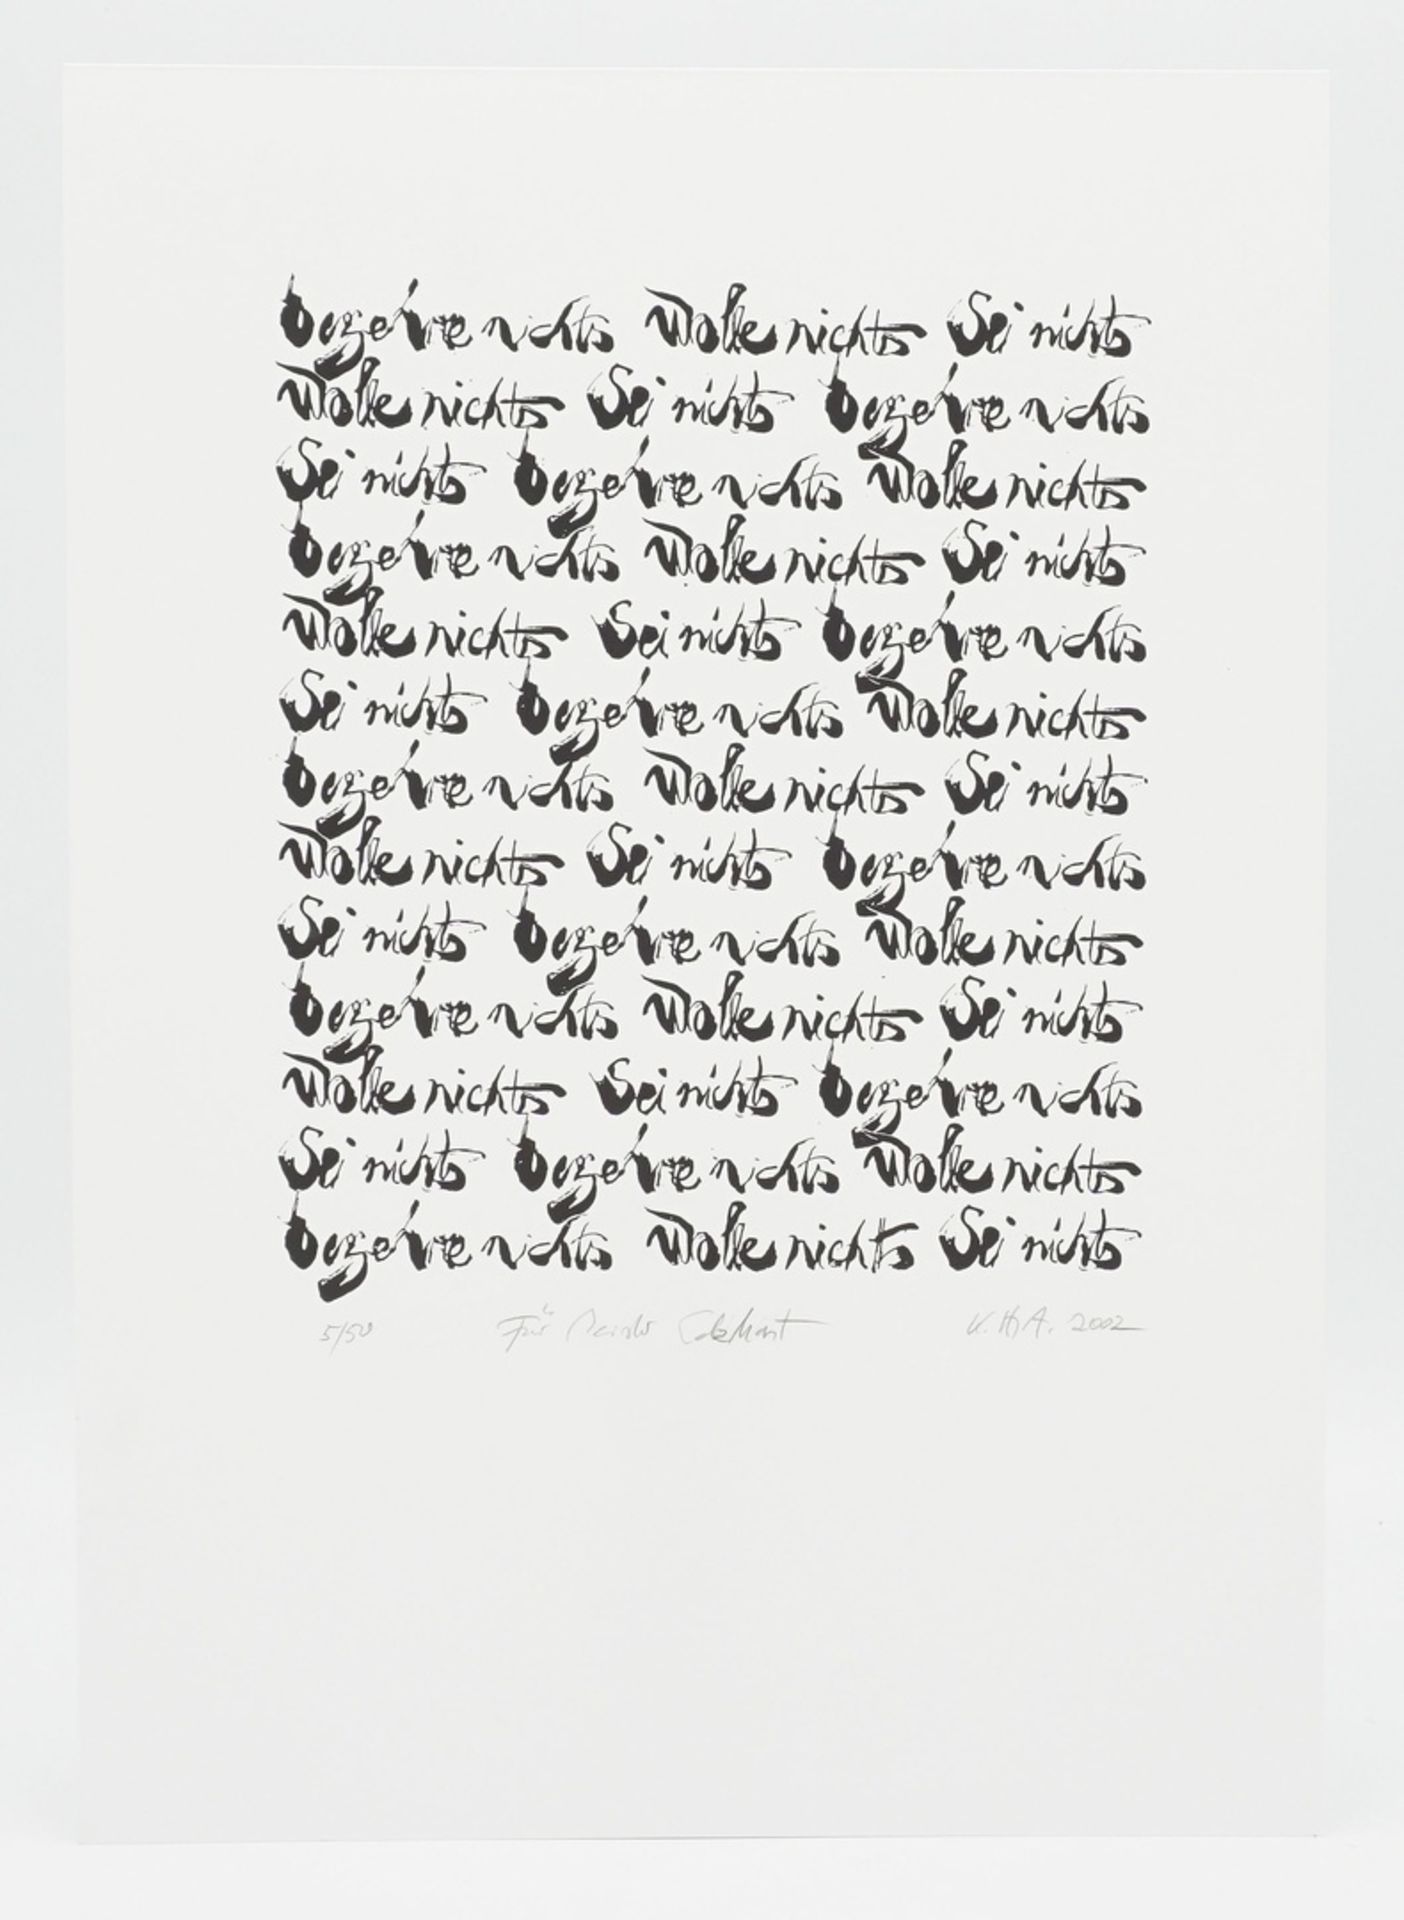 begehre nichts Wolle nichts Sei nichts
Wolle nichts Sei nichts begehre nichts
Sei nichts begehre nichts Wolle nichts
begehre nichts Wolle nichts Sei nichts
Wolle nichts Sei nichts begehre nichts
Sei nichts begehre nichts Wolle nichts
begehre nichts Wolle nichts Sei nichts
Wolle nichts Sei nichts begehre nichts
Sei nichts begehre nichts Wolle nichts
begehre nichts Wolle nichts Sei nichts
Wolle nichts Sei nichts begehre nichts
Sei nichts begehre nichts Wolle nichts
begehre nichts Wolle nichts Sei nichts
5/50 Für Meister Eckhart K.H.A. 2002